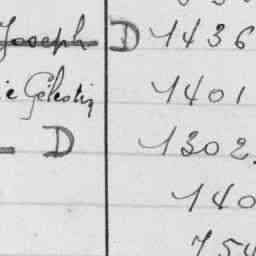 Joseph D 1436
ie Célestin 1401
D 1302
140
754